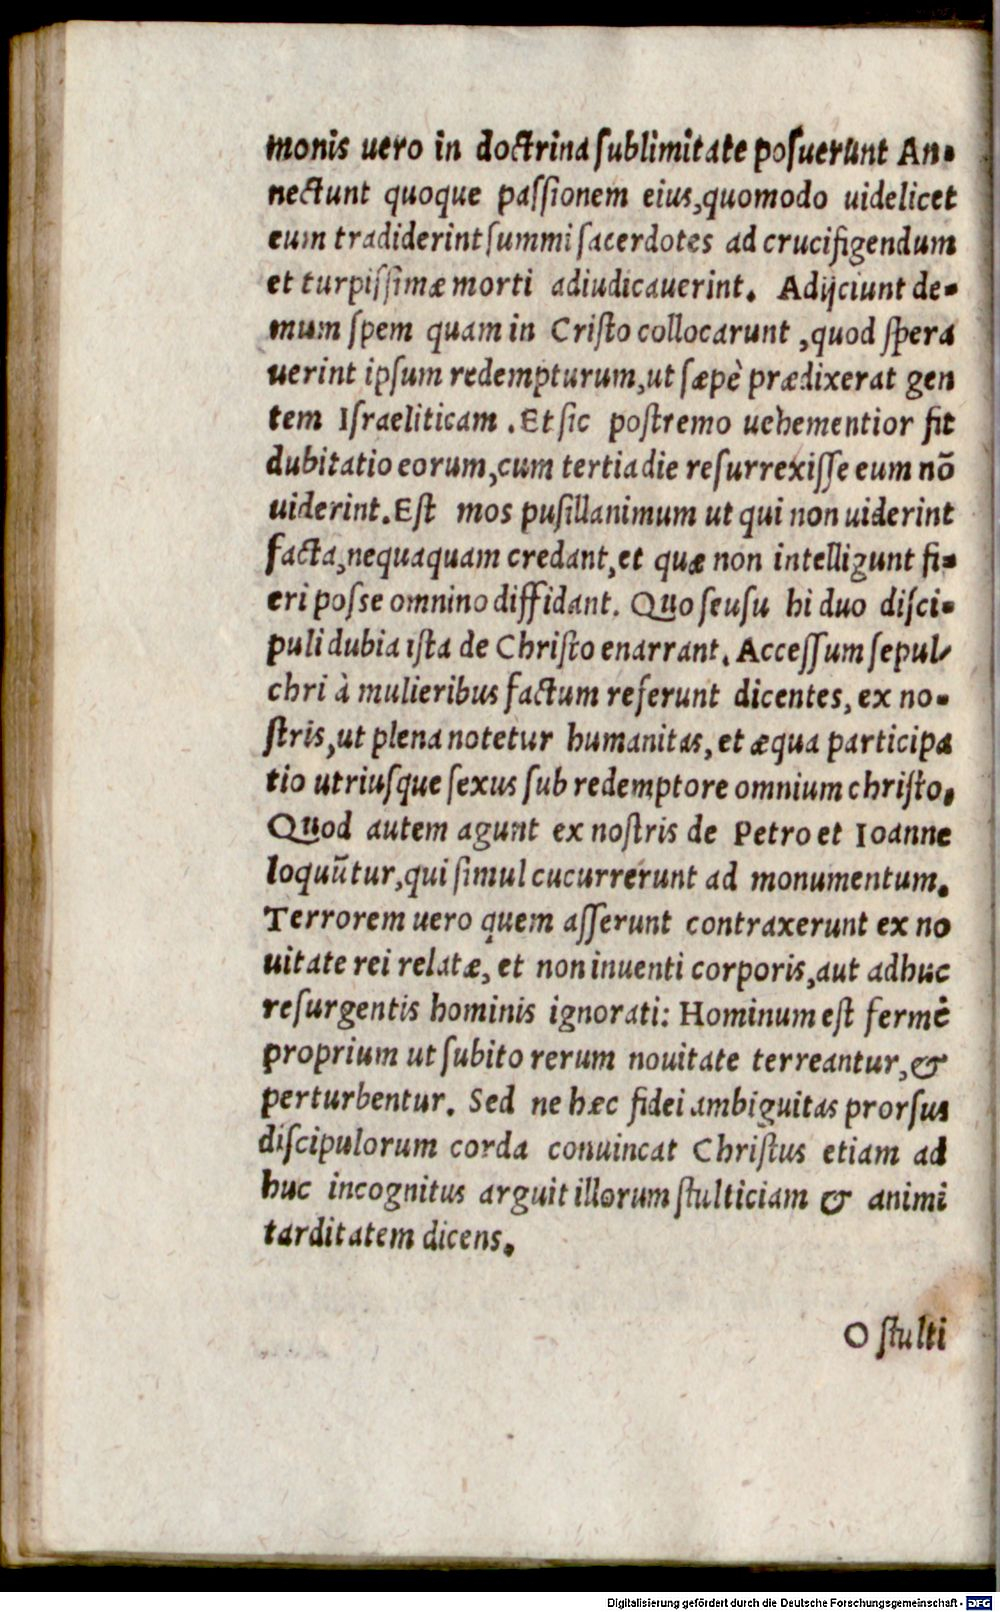 monis uero in doctrina sublimitate posuerunt An-
nectunt quoque passionem eius, quomodo uidelicet
eum tradiderint summi sacerdotes ad crucifigendum
et turpissimæ morti adiudicauerint. Adijciunt de-
mum spem quam in Cristo collocarunt, quod spera
uerint ipsum redempturum, ut sæpè prædixerat gen
tem Israeliticam. Et sic postremo uehementior fit
dubitatio eorum, cum tertia die resurrexisse eum nō
uiderint. Est mos pusillanimum ut qui non uiderint
facta, nequaquam credant, et quæ non intelligunt fi-
eri posse omnino diffidant. Quo seusu hi duo disci-
puli dubia ista de Christo enarrant. Accessum sepul-
chri à mulieribus factum referunt dicentes, ex no-
stris, ut plena notetur humanitas, et æqua participa
tio utriusque sexus sub redemptore omnium christo.
Quod autem agunt ex nostris de Petro et Ioanne
loquūtur, qui simul cucurrerunt ad monumentum.
Terrorem uero quem asserunt contraxerunt ex no
uitate rei relatæ, et non inuenti corporis, aut adhuc
resurgentis hominis ignorati: Hominum est fermè
proprium ut subito rerum nouitate terreantur, &
perturbentur. Sed ne hæc fidei ambiguitas prorsus
discipulorum corda conuincat Christus etiam ad
huc incognitus arguit illorum stulticiam & animi
tarditatem dicens.
O stulti
Digitalisierung gefördert durch die Deutsche Forschungsgemeinschaft - DFG